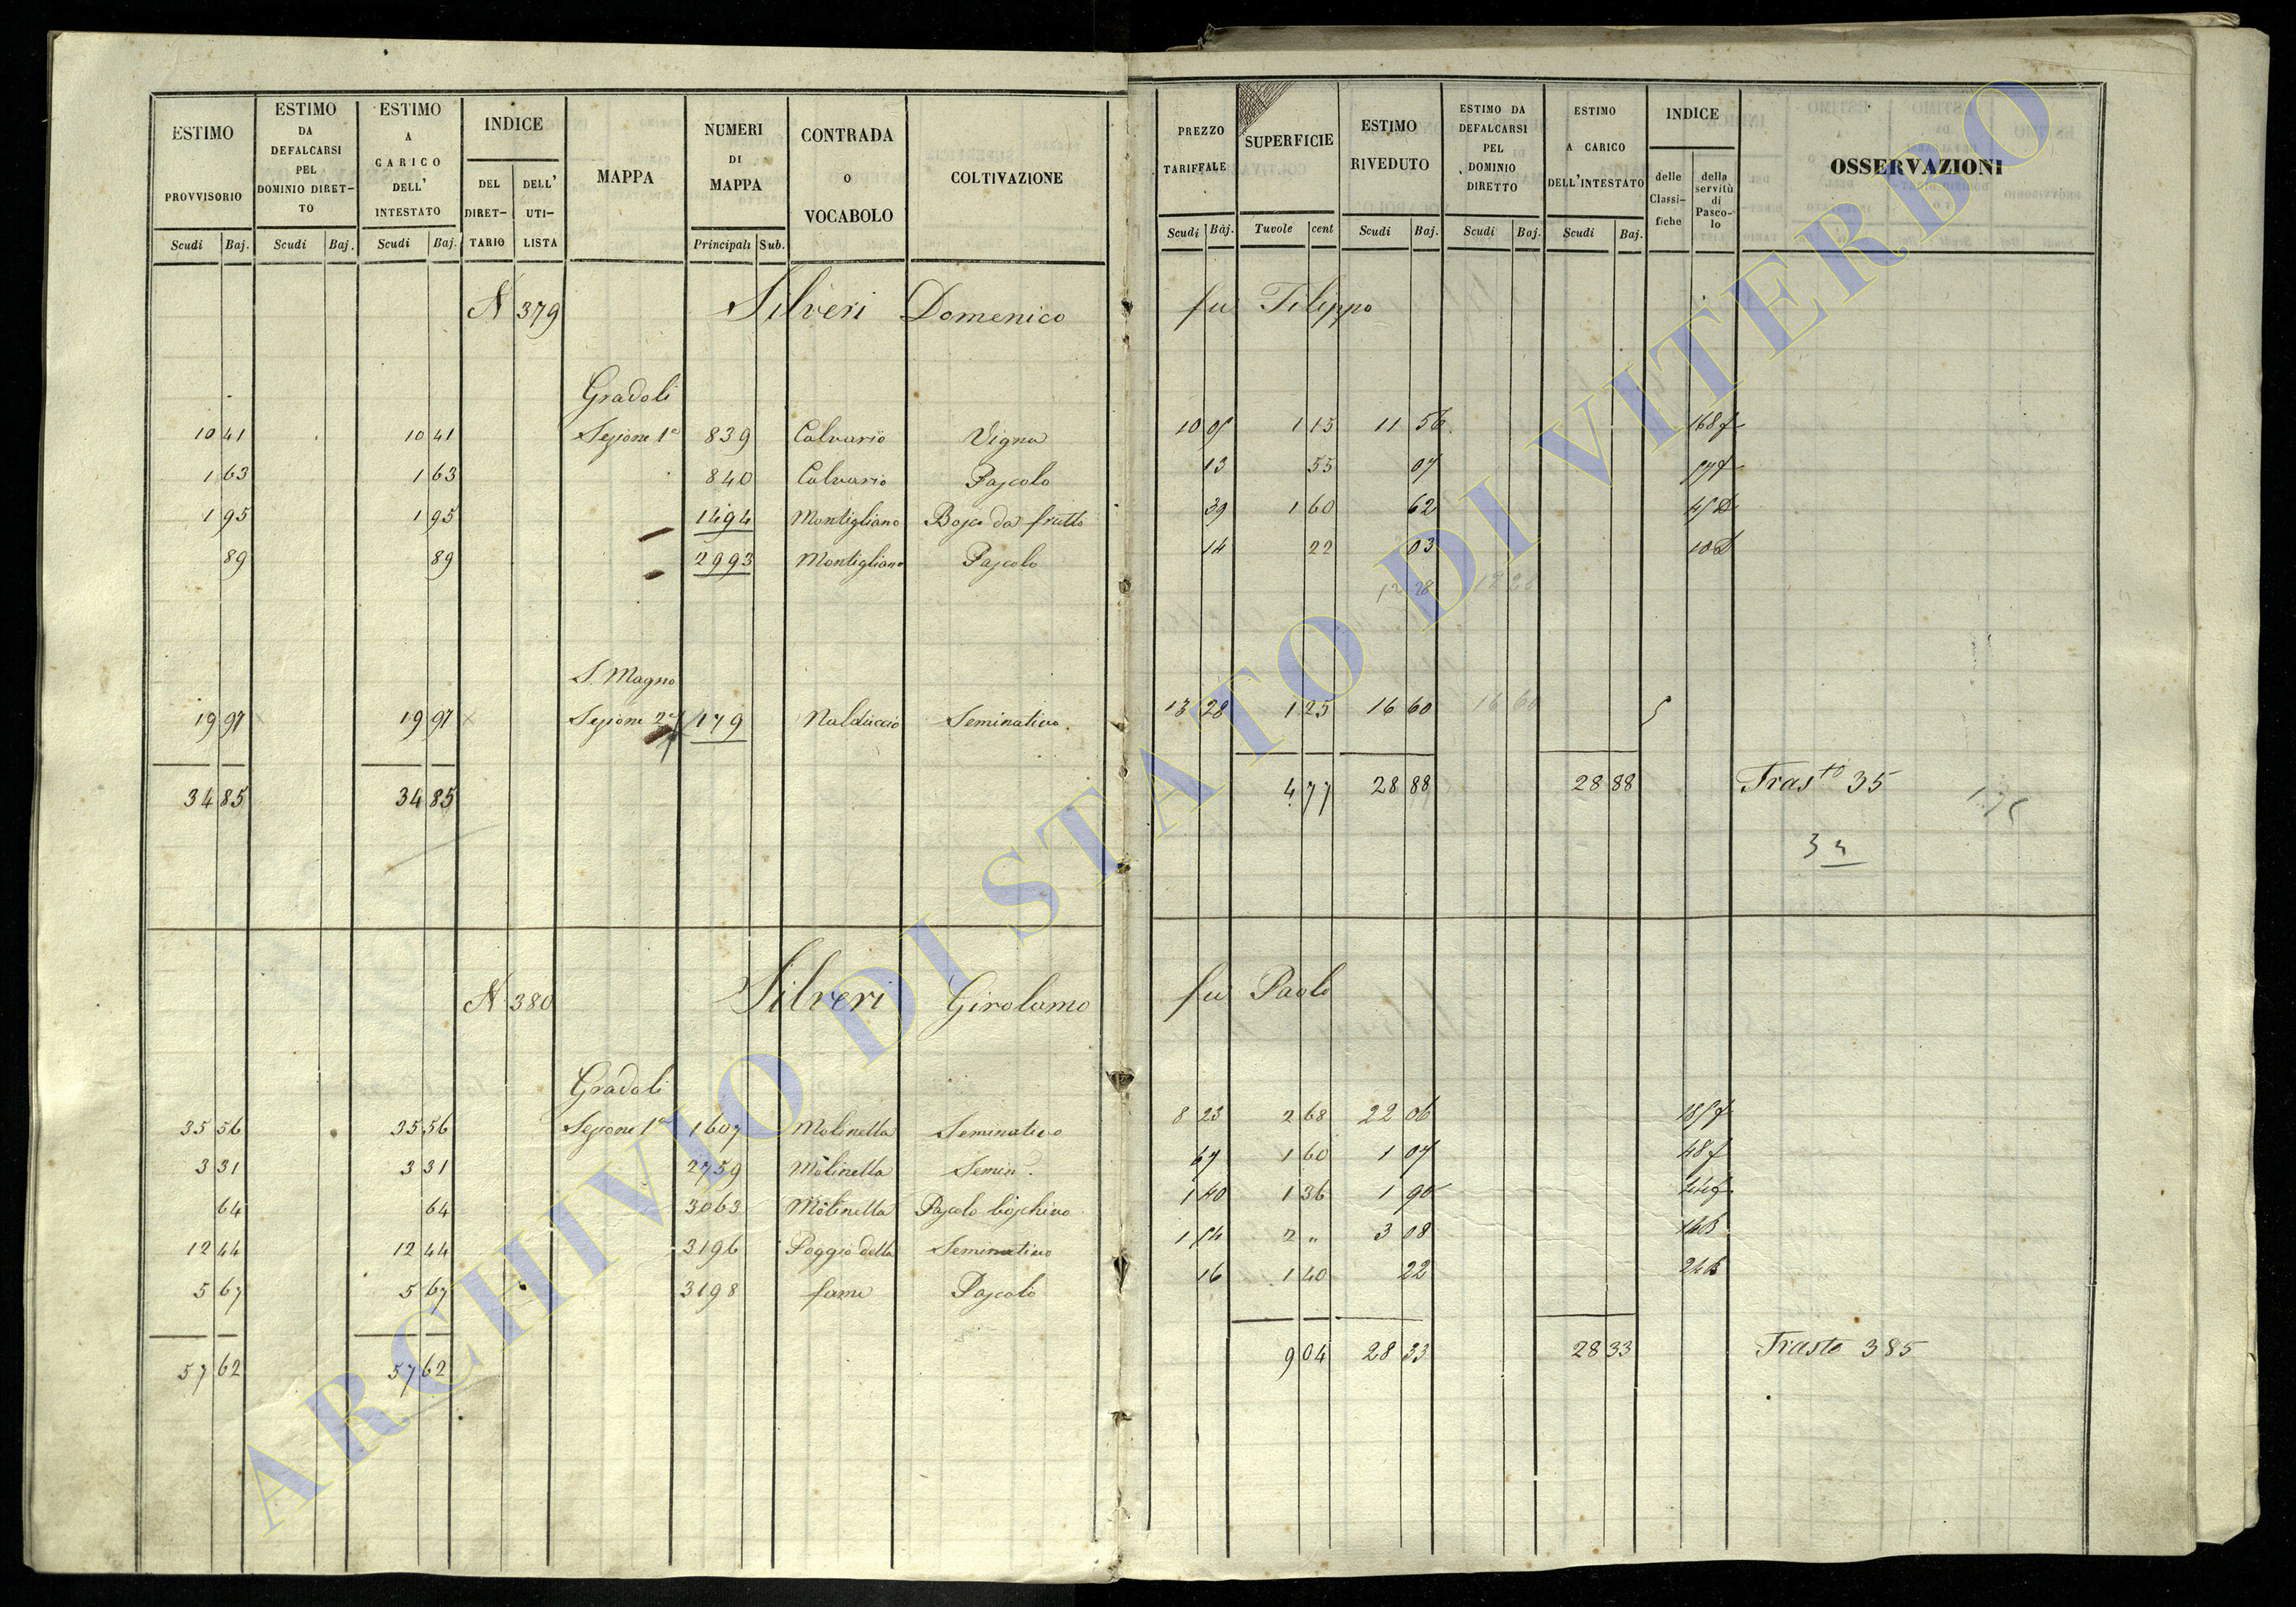 ESTIMO PROVVISORIO Scudi Baj.
ESTIMO DA DEFALCARSI PEL DOMINIO DIRET- TO Scudi Baj.
ESTIMO A CARICO DELL' INTESTATO Scudi Baj.
INDICE DEL DIRET- TARIO DELL' UTI- LISTA
MAPPA
NUMERI DI MAPPA Principali Sub.
CONTRADA O VOCABOLO
COLTIVAZIONE
PREZZO TARIFFALE Scudi Baj.
SUPERFICIE Tavole cent
ESTIMO RIVEDUTO Scudi Baj.
ESTIMO DA DEFALCARSI PEL DOMINIO DIRETTO Scudi Baj.
ESTIMO A CARICO DELL'INTESTATO Scudi Baj.
INDICE delle Classi- fiche della servitù di Pasco- lo
OSSERVAZIONI
N 379 Silveri Domenico fu Filippo
Gradoli
10 41 10 41 Sezione 1a 839 Calvario Vigna 10 05 1 15 11 56
1 63 1 63 840 Calvario Pascolo 13 55 07
1 95 1 95 1494 Montigliano Bosco da frutto 39 1 60 62
89 89 2993 Montigliano Pascolo 14 22 03
12 28 12 28
S. Magno
19 97 19 97 Sezione 2a 179 Valduccio Seminativo 13 28 1 25 16 60 16 60
34 85 34 85 4 77 28 88 28 88 Trasto 35
N 380 Silveri Girolamo fu Paolo
Gradoli
35 56 35 56 Sezione 1a 1607 Molinella Seminativo 8 23 2 68 22 06
3 31 3 31 2759 Molinella Semin. 67 1 60 1 07
64 64 3063 Molinella Pascolo boschivo 1 40 1 36 1 90
12 44 12 44 3196 Poggio della Seminativo 1 54 2 " 3 08
5 67 5 67 3198 fame Pascolo 16 1 40 22
57 62 57 62 9 04 28 33 28 33 Trasto 385
ARCHIVIO DI STATO DI VITERBO